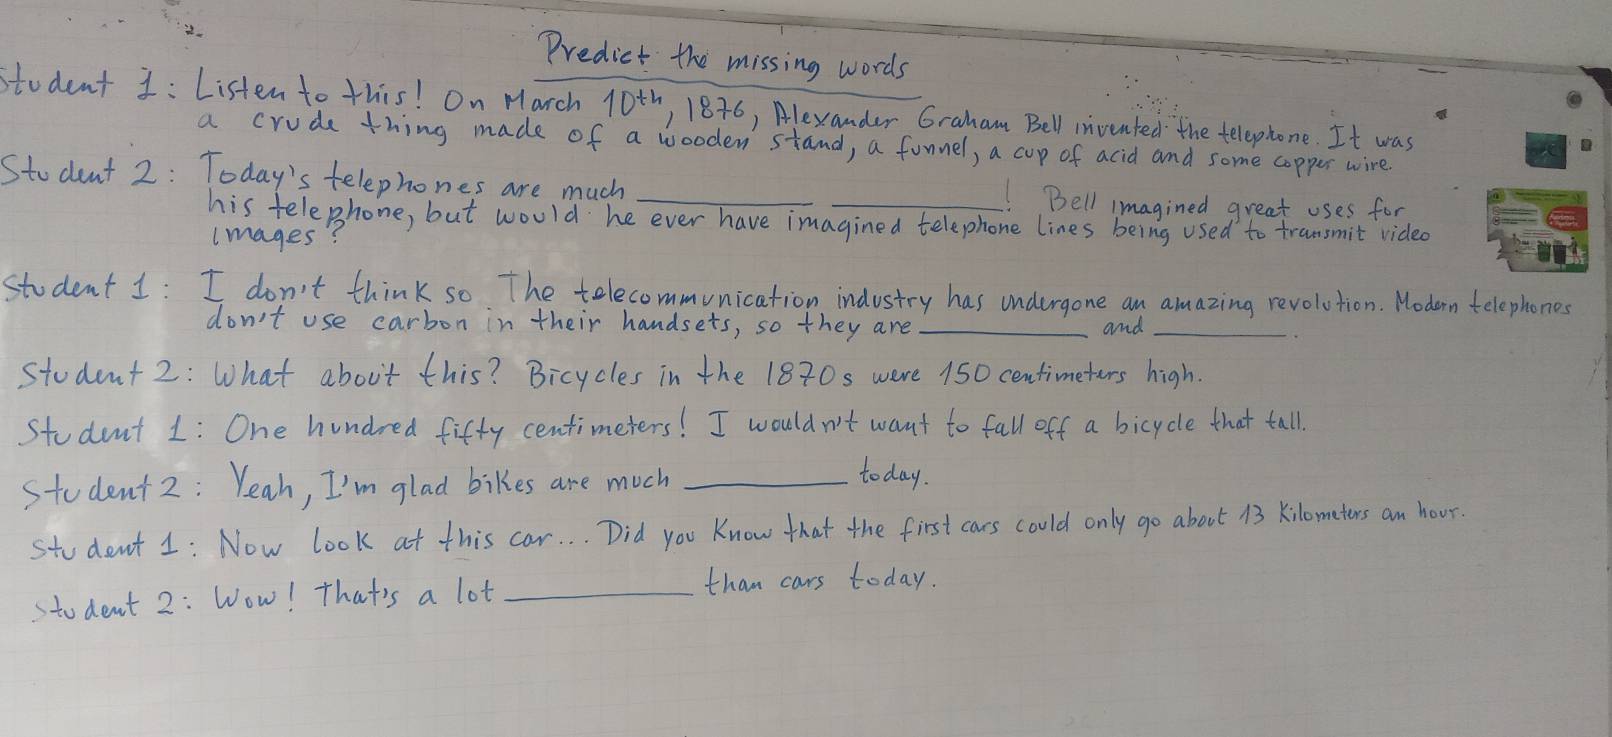 Predict the missing words
Student 1: Listen to this! On March 10th, 1876, Alexander Graham Bell invented the telephone. It was
a crude thing made of a wooden stand, a funnel, a cup of acid and some copper wire.
Student 2: Today's telephones are much __________ __________! Bell imagined great uses for
his telephone, but would he ever have imagined telephone lines being used to transmit video
images?
Student 1: I don't think so The telecommunication industry has undergone an amazing revolution. Modern telephones
don't use carbon in their handsets, so they are __________ and __________.
Student 2: What about this? Bicycles in the 1870s were 150 centimeters high.
Student 1: One hundred fifty centimeters! I wouldn't want to fall off a bicycle that tall.
Student 2: Yeah, I'm glad bikes are much __________ today.
Student 1: Now look at this car... Did you know that the first cars could only go about 13 Kilometers an hour.
Student 2: Wow! That's a lot __________ than cars today.